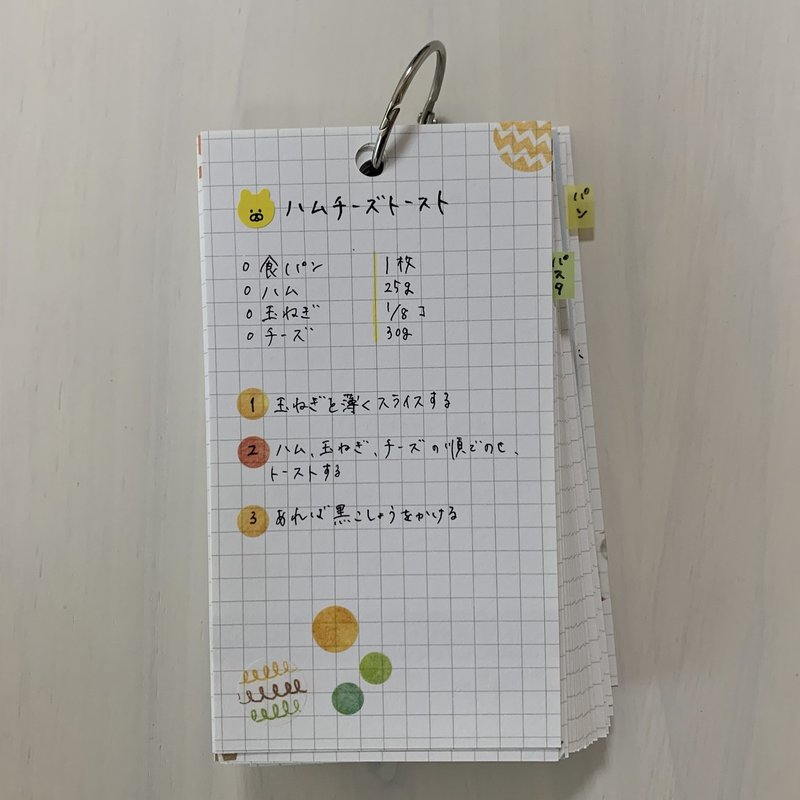 ハムチーズトースト
○ 食パン 1枚
○ ハム 25g
○ 玉ねぎ 1/8コ
○ チーズ 30g
1 玉ねぎを薄くスライスする
2 ハム、玉ねぎ、チーズの順でのせ、
トーストする
3 あれば黒こしょうをかける
パン
パスタ